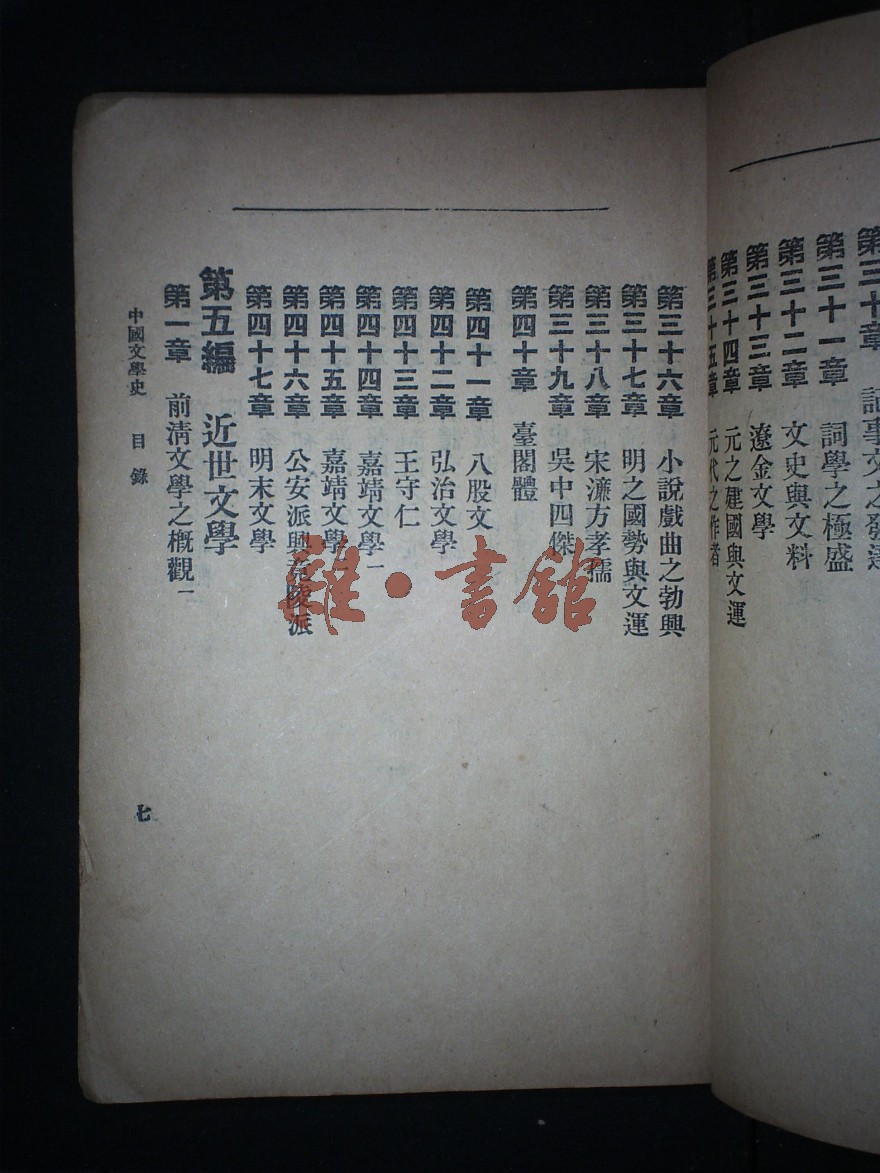 第三十章 記事文之發達
第三十一章 詞學之極盛
第三十二章 文史與文料
第三十三章 遼金文學
第三十四章 元之建國與文運
第三十五章 元代之作者
第三十六章 小說戲曲之勃興
第三十七章 明之國勢與文運
第三十八章 宋濂方孝孺
第三十九章 吳中四傑
第四十章 臺閣體
第四十一章 八股文
第四十二章 弘治文學
第四十三章 王守仁
第四十四章 嘉靖文學一
第四十五章 嘉靖文學
第四十六章 公安派與竟陵派
第四十七章 明末文學
第五編 近世文學
第一章 前淸文學之槪觀一
中國文學史 目錄
七
雜·書館